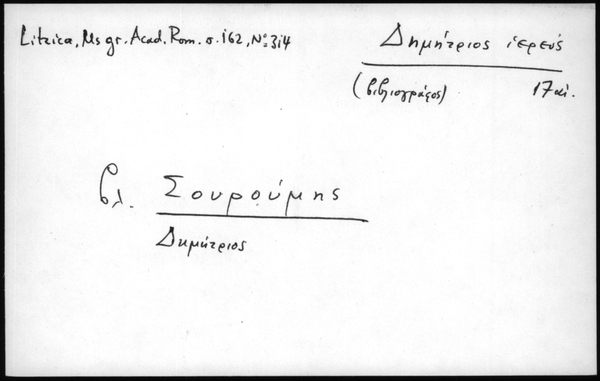 Litzica, Ms gr. Acad. Rom. σ. 162, Nº 314
Δημήτριος ἱερεύς
(βιβλιογράφος) 17 αἰ.
βλ. Σουρούμης
Δημήτριος